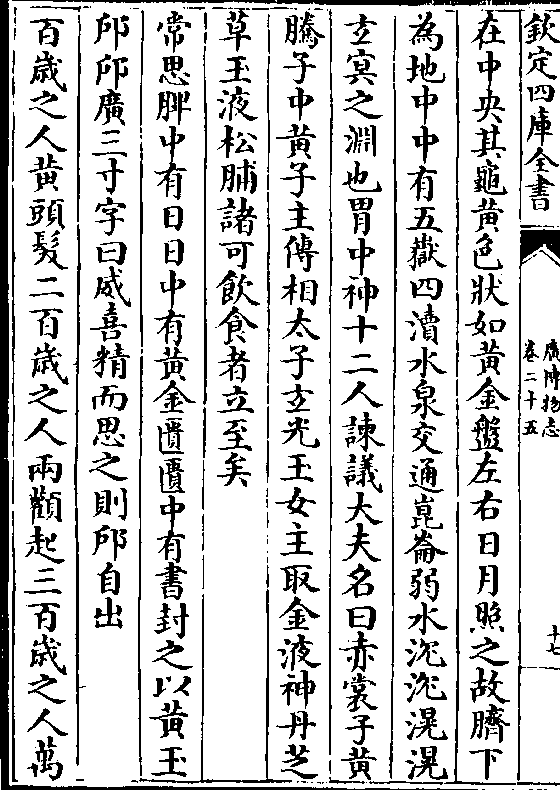 欽定四庫全書
廣博物志
卷二十五
十七
在中央其龜黃色狀如黃金盤左右日月照之故臍下
為地中中有五嶽四瀆水泉交通崑崙弱水沉沉滉滉
玄冥之淵也胃中神十二人諫議大夫名曰赤裳子黃
騰子中黃子主傳相太子玄光玉女主取金液神丹芝
草玉液松脯諸可飲食者立至矣
常思脾中有日日中有黃金匱匱中有書封之以黃玉
卭卭廣三寸字曰威喜精而思之則卭自出
百歲之人黃頭髮二百歲之人兩顴起三百歲之人萬